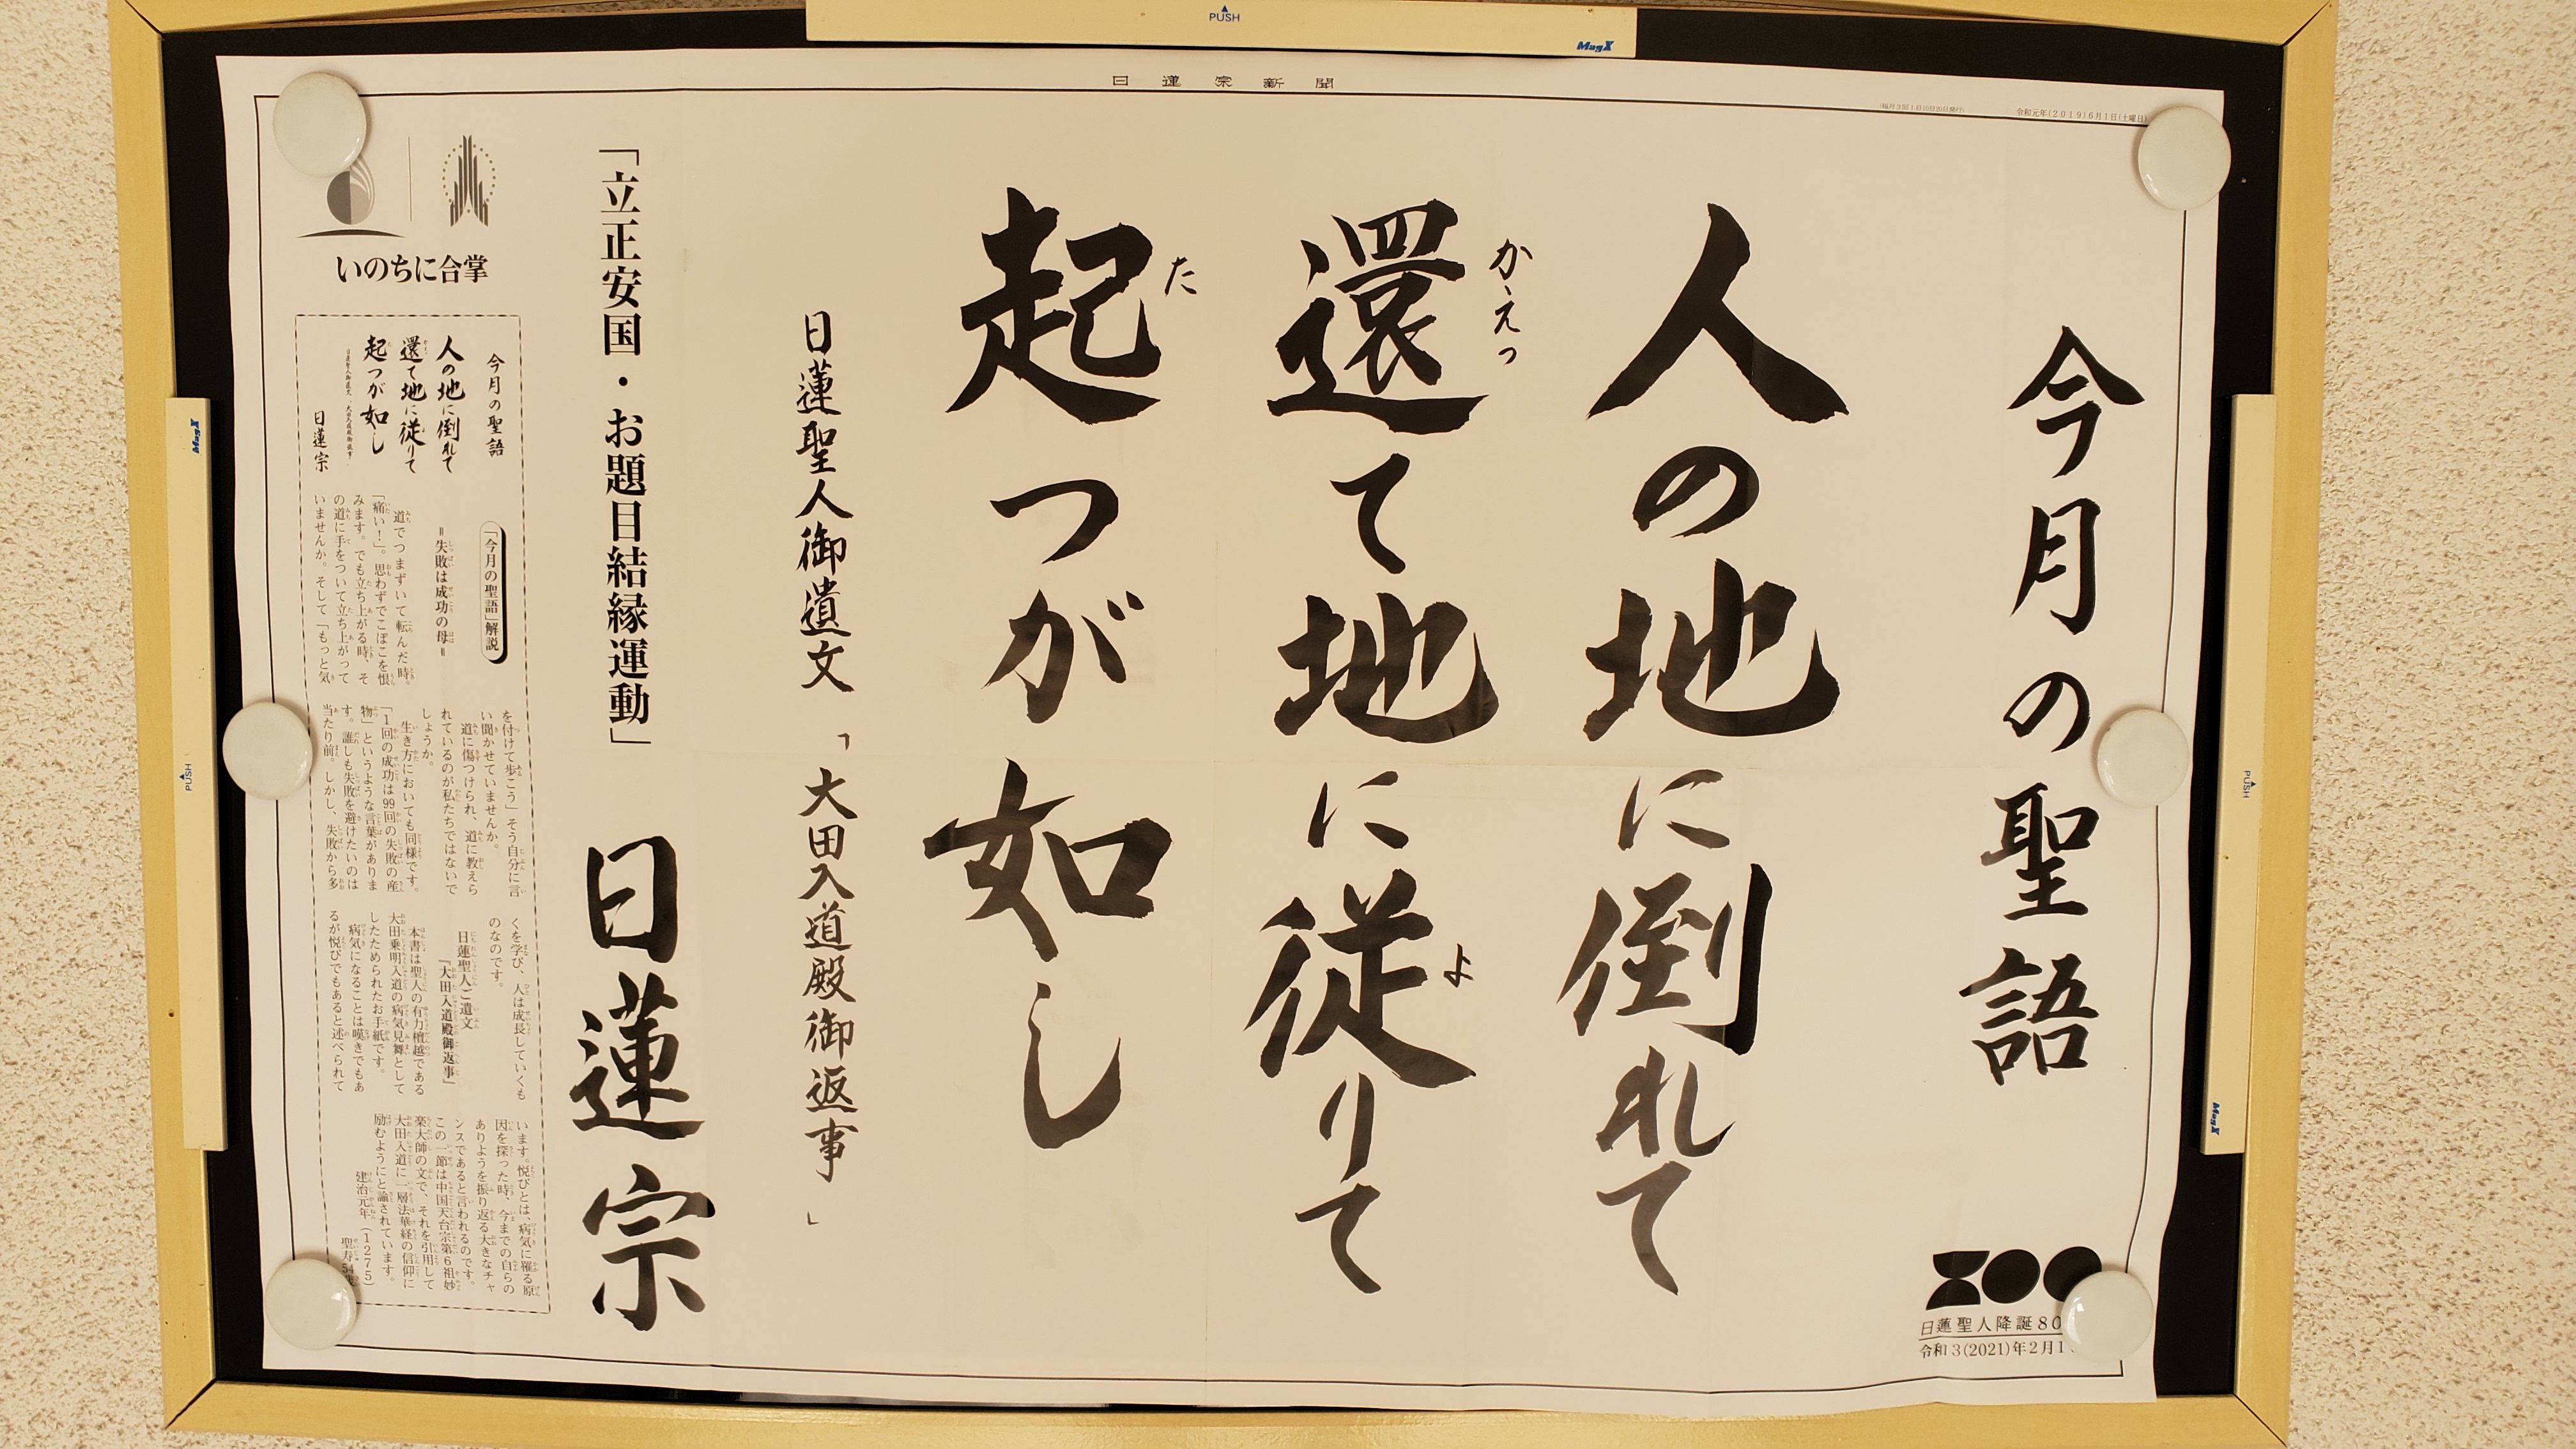 日蓮宗新聞
令和元年(2019)6月1日(土曜日)
今月の聖語
人の地に倒れて
還て地に従りて
かえっ
よ
起つが如し
た
日蓮聖人御遺文「大田入道殿御返事」
「立正安国・お題目結縁運動」
日蓮宗
いのちに合掌
今月の聖語
人の地に倒れて
還て地に従りて
起つが如し
日蓮宗
「今月の聖語」解説
=失敗は成功の母=
道でつまずいて転んだ時。
「痛い!」。思わずでこぼこを恨
みます。でも立ち上がる時、そ
の道に手をついて立ち上がって
いませんか。そして「もっと気
を付けて歩こう」そう自分に言
い聞かせていませんか。
道に傷つけられ、道に教えら
れているのが私たちではないで
しょうか。
生き方においても同様です。
「1回の成功は99回の失敗の産
物」というような言葉がありま
す。誰しも失敗を避けたいのは
当たり前。しかし、失敗から多
くを学び、人は成長していくも
のなのです。
日蓮聖人ご遺文
「大田入道殿御返事」
本書は聖人の有力檀越である
大田乗明入道の病気見舞として
したためられたお手紙です。
病気になることは嘆きでもあ
るが悦びでもあると述べられて
います。悦びとは、病気に罹る原
因を探った時、今までの自らの
ありようを振り返る大きなチャ
ンスであると言われるのです。
この一節は中国天台宗第6祖妙
楽大師の文で、それを引用して
大田入道に一層法華経の信仰に
励むようにと諭されています。
建治元年(1275)
聖寿54
ZOO
日蓮聖人降誕80
令和3(2021)年2月1
PUSH
MagX
MagX
PUSH
PUSH
MagX